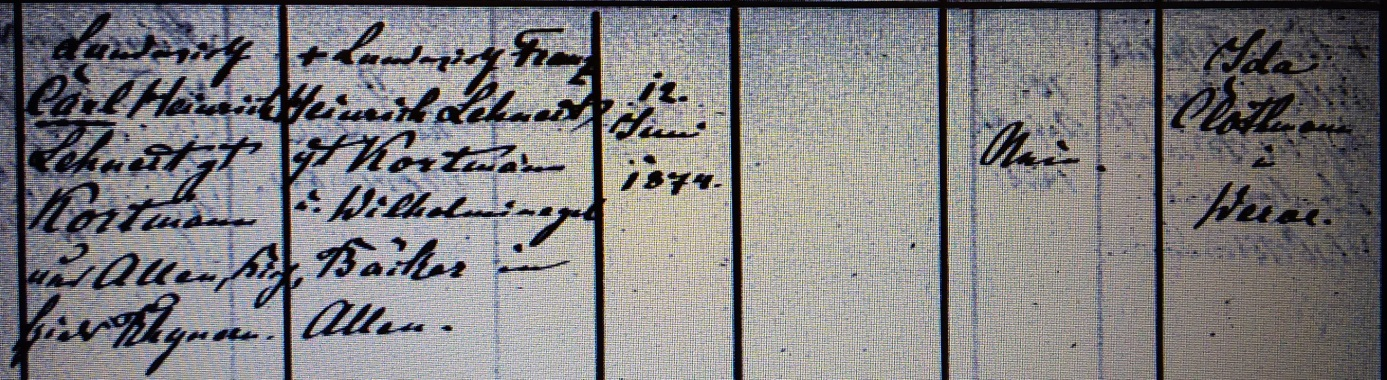 Landwirth
Carl Heinrich
Lehnert gt
Kortmann
aus Allen, Ksp,
hier Rhynern.
+ Landwirth Franz
Heinrich Lehnert
gt Kortmann
u. Wilhelmine geb
Bäcker in
Allen.
12.
Juni
1874.
Nein.
Ida
in
Werne.